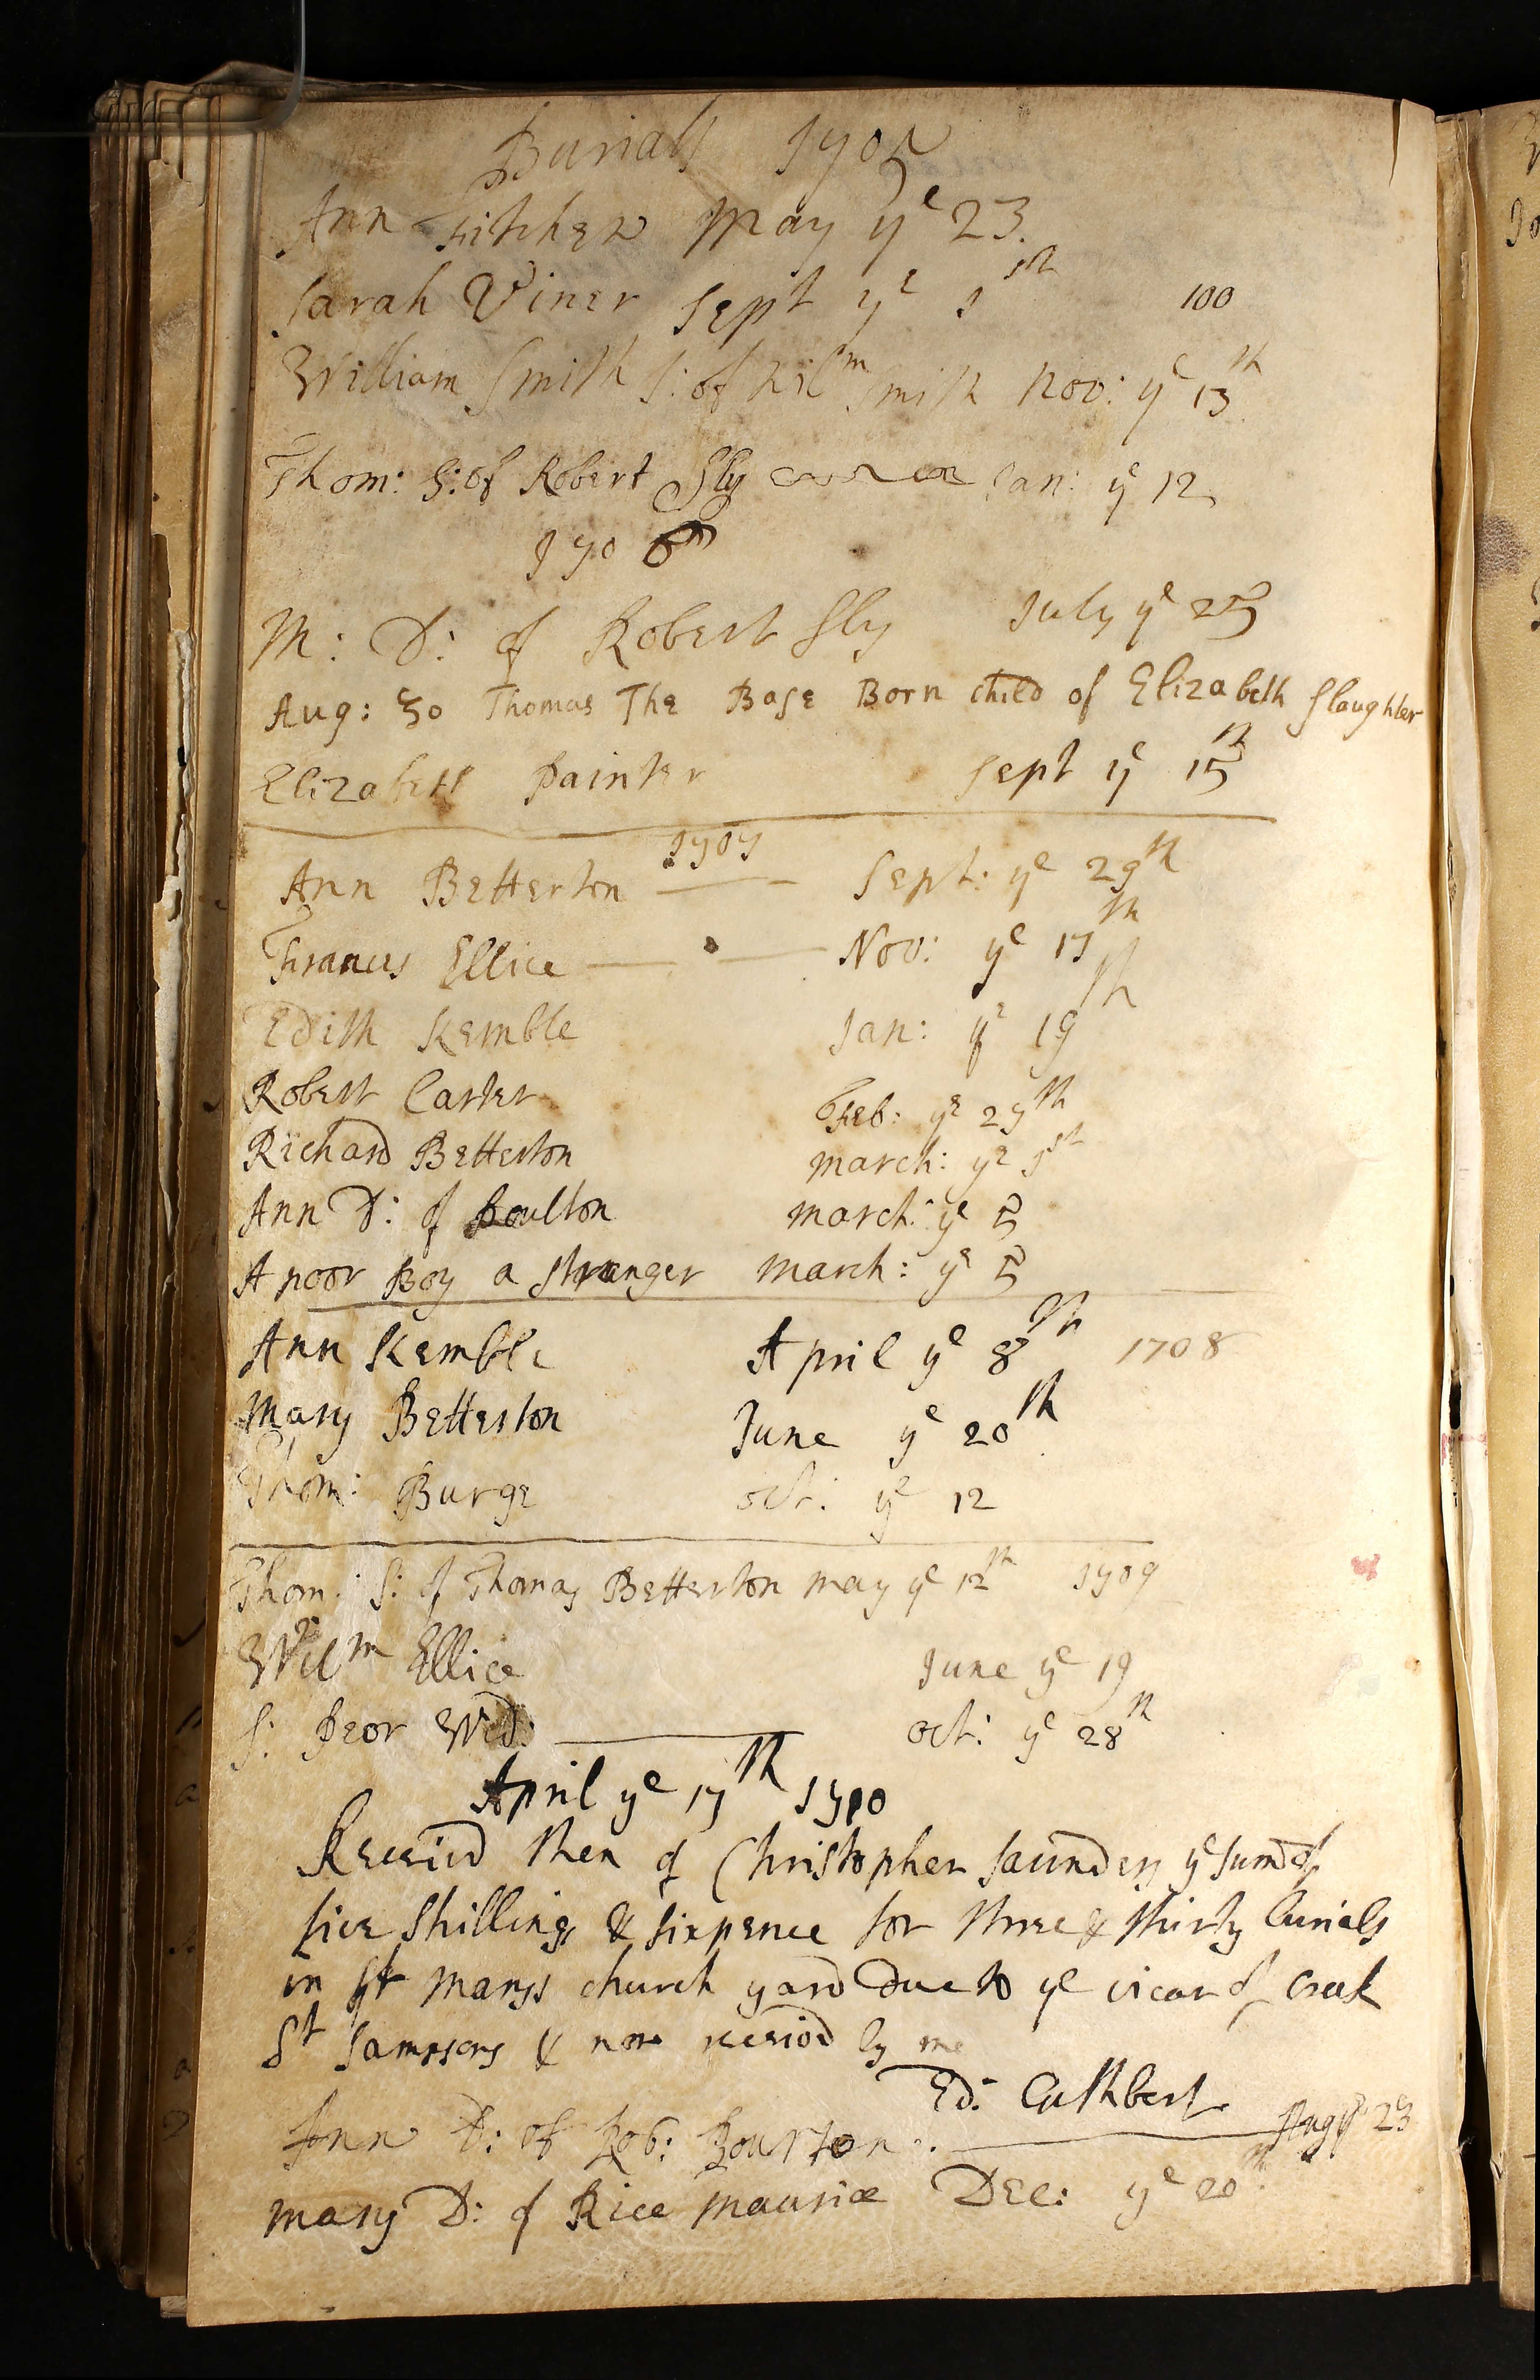 Burials 1705
Ann Fitchew May ye 23.
Sarah Viner Sept ye 1st 100
William Smith S: of Wilm Smith Nov: ye 13th
Thom: S: of Robert Sly Jan: ye 12
1706
M: D: of Robert Sly July ye 25
Aug: 30 Thomas The Base Born child of Elizabeth Slaughter
Elizabeth Painter Sept ye 15th
1707
Ann Betterton — Sept: ye 29th
Francis Ellice — Nov: ye 17th
Edith Kemble Jan: ye 19th
Robert Carter Feb: ye 27th
Richard Betterton march: ye 1st
Ann D: of Boulton march: ye 5
A poor Boy a stranger march: ye 5
Ann Kemble April ye 8th 1708
Mary Betterton June ye 20th
Thom: Burge oct: ye 12
Thom: S: of Thomas Betterton may ye 12th 1709
Wilm Ellice June ye 19
S: Wid: — oct: ye 28th
April ye 17th 1710
Receivd then of Christopher Saunders ye sum of
five Shillings & sixpence for three & thirty burials
in St Marys church yard Due to ye vicar of Creek
St Sampsons & now receivd by me
Ed: Cuthbert
Ann D: of Rob: Bourton. — Aug ye 23
mary D: of Rice maurice Dec: ye 20th